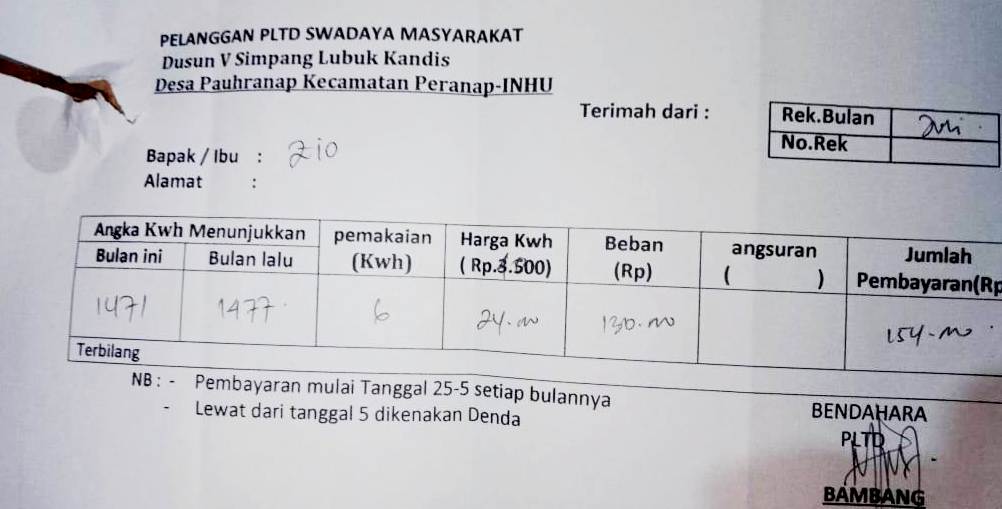 PELANGGAN PLTD SWADAYA MASYARAKAT
Dusun V Simpang Lubuk Kandis
Desa Pauhranap Kecamatan Peranap-INHU
Terimah dari :
Rek.Bulan
No.Rek
Bapak / Ibu : Zio
Alamat :
Angka Kwh Menunjukkan pemakaian Harga Kwh Beban angsuran Jumlah
Bulan ini Bulan lalu (Kwh) ( Rp.3.500) (Rp) ( ) Pembayaran(Rp
1471 1477 6 24.000 130.000 154.000
Terbilang
NB : - Pembayaran mulai Tanggal 25-5 setiap bulannya
- Lewat dari tanggal 5 dikenakan Denda
BENDAHARA
PLTD
BAMBANG